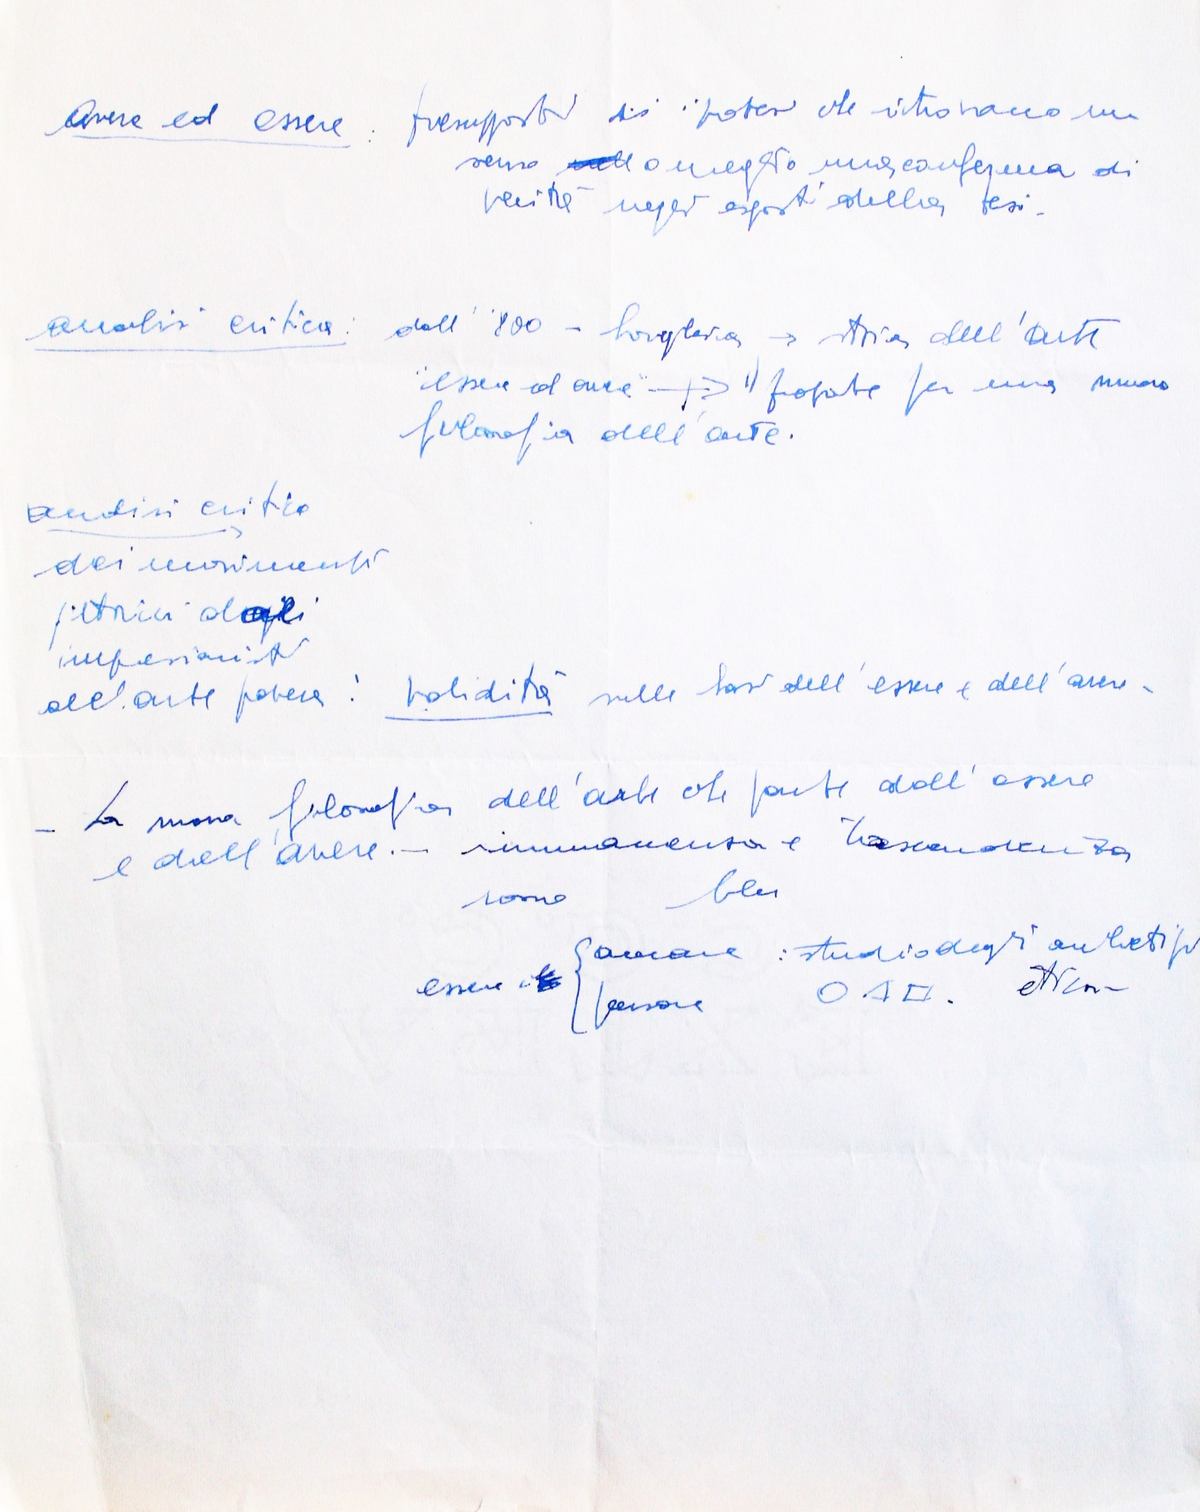 Avere ed essere : presupposti di ipotesi che ritrovano un
senso o meglio una conferma di
verità negli esposti della tesi.
analisi critica : dall'800 - → storia dell'arte
"essere ed avere" → proposte per una nuova
filosofia dell'arte.
analisi critica
dei movimenti
pittorici dagli
impressionisti
all'arte povera : validità sulle basi dell'essere e dell'avere -
- La nuova filosofia dell'arte che parte dall'essere
e dall'avere. - immanenza e trascendenza
rosso blu
essere { amare : studio degli archetipi
pensare ○ △ □ .